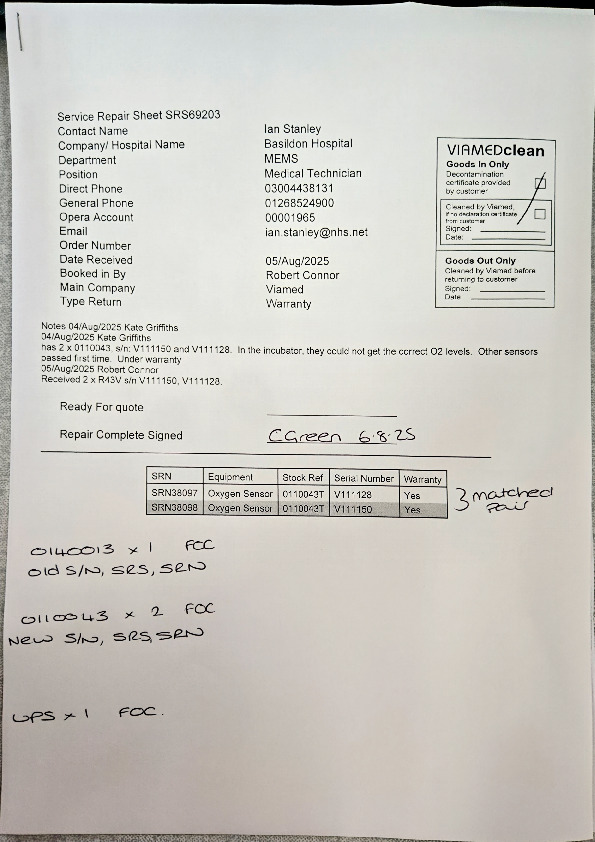 Service Repair Sheet SRS69203
Contact Name Ian Stanley
Company/ Hospital Name Basildon Hospital
Department MEMS
Position Medical Technician
Direct Phone 03004438131
General Phone 01268524900
Opera Account 00001965
Email ian.stanley@nhs.net
Order Number
Date Received 05/Aug/2025
Booked in By Robert Connor
Main Company Viamed
Type Return Warranty
VIAMEDclean
Goods In Only
Decontamination
certificate provided
by customer
Cleaned by Viamed,
if no declaration certificate
from customer
Signed:
Date:
Goods Out Only
Cleaned by Viamed before
returning to customer
Signed:
Date
Notes 04/Aug/2025 Kate Griffiths
04/Aug/2025 Kate Griffiths
has 2 x 0110043, s/n: V111150 and V111128. In the incubator, they could not get the correct O2 levels. Other sensors
passed first time. Under warranty
05/Aug/2025 Robert Connor
Received 2 x R43V s/n V111150, V111128.
Ready For quote
Repair Complete Signed CGreen 6.8.25
SRN Equipment Stock Ref Serial Number Warranty
SRN38097 Oxygen Sensor 0110043T V111128 Yes
SRN38098 Oxygen Sensor 0110043T V111150 Yes
matched
pair
0140013 x 1 FOC
Old S/N, SRS, SRN
0110043 x 2 FOC
New S/N, SRS, SRN
UPS x 1 FOC.